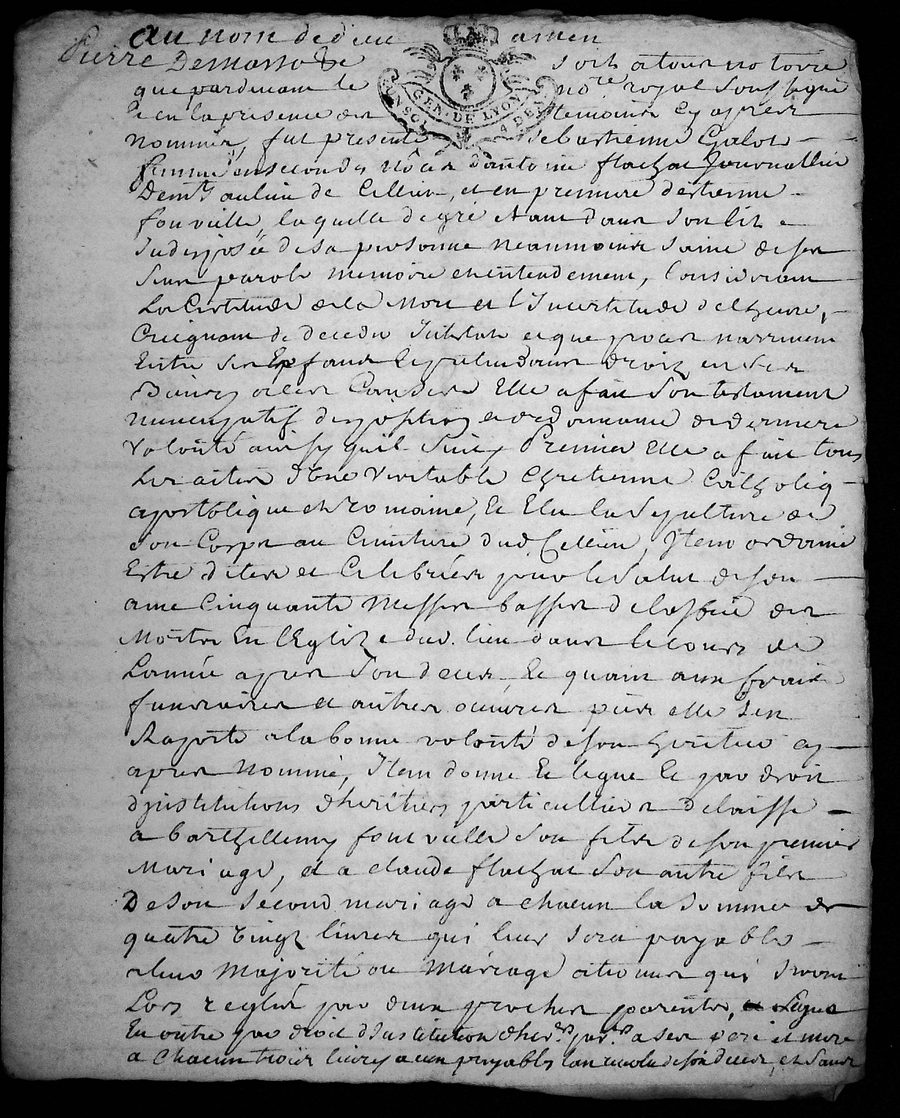 Au nom de dieu amen
Pierre Demasso soit atous notoire
que pardevant le no.re royal soussigné
Et en la presence des temoins cy apres
nommés, fut presente sebastienne Galot
femme en secondes nôces d'antoine flachat Journallier
De mt aulin de Cellieu, et en premiere d'estienne
fonvielle, laquelle de gré etant dans son lit
Indisposée de sa personne neanmoins saine de ses
sens parole memoire et entendement, Considerant
La Certitude de la Mort et l'Incertitude de l'heure,
Creignant de deceder Intestat et que proces narrivent
Entre ses Enfants et pretendants droits en ses
Biens, a ces Causes Elle a fait son testament
nuncupatif disposition et ordonnance de derniere
Volonté ainsy quil suit, Premier Elle a fait tous
Les actes d'Une Veritable Chretienne Catholiq
apostolique et romaine, Et Elu la sepulture de
son Corps au Cimitiere dud. Cellieu, Item ordonne
Estre dites et Celebrées pour le salut de son
ame Cinquante Messes basses de l'office des
Morts En l'Eglize dud. lieu dans le cours de
L'année apres son deces, Et quant aux frais
funeraires et autres oeuvres pies elle s'en
Raporte a la bonne volonté de son heritier cy
apres Nommé, Item donne Et legue Et par droit
d'institutions d'heritiers particulliers delaisse
a barthellemy fonvielle son fils de son premier
Mariage, et a claude flachat son autre fils
De son second mariage a chacun la somme de
quatre Vingt livres qui leur sera payable
a leur Majorité ou Mariage atermes qui seront
Lors reglés par deux proches parents, Legue
En outre par droit d'Institution d'her.rs par.rs a ses pere et mere
a chacun trois livres aeux payables l'an revolu de son deces, et Sauf